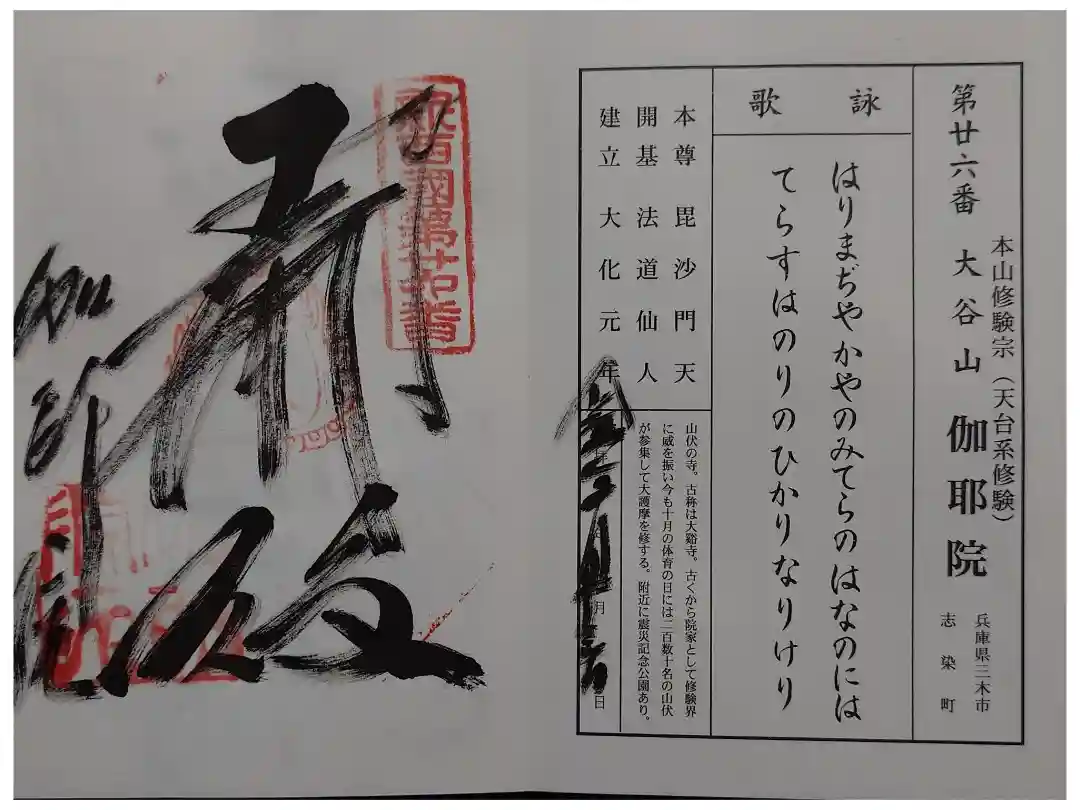 第廿六番 大谷山 伽耶院
本山修験宗(天台系修験)
兵庫県三木市
志染町
詠歌
はりまぢやかやのみてらのはなのには
てらすはのりのひかりなりけり
本尊 毘沙門天
開基 法道仙人
建立 大化元年
山伏の寺。古称は大谿寺。古くから院家として修験界
に威を振い今も十月の体育の日には二百数十名の山伏
が参集して大護摩を修する。附近に震災記念公園あり。
月 日
新西國第廿六番
伽耶院